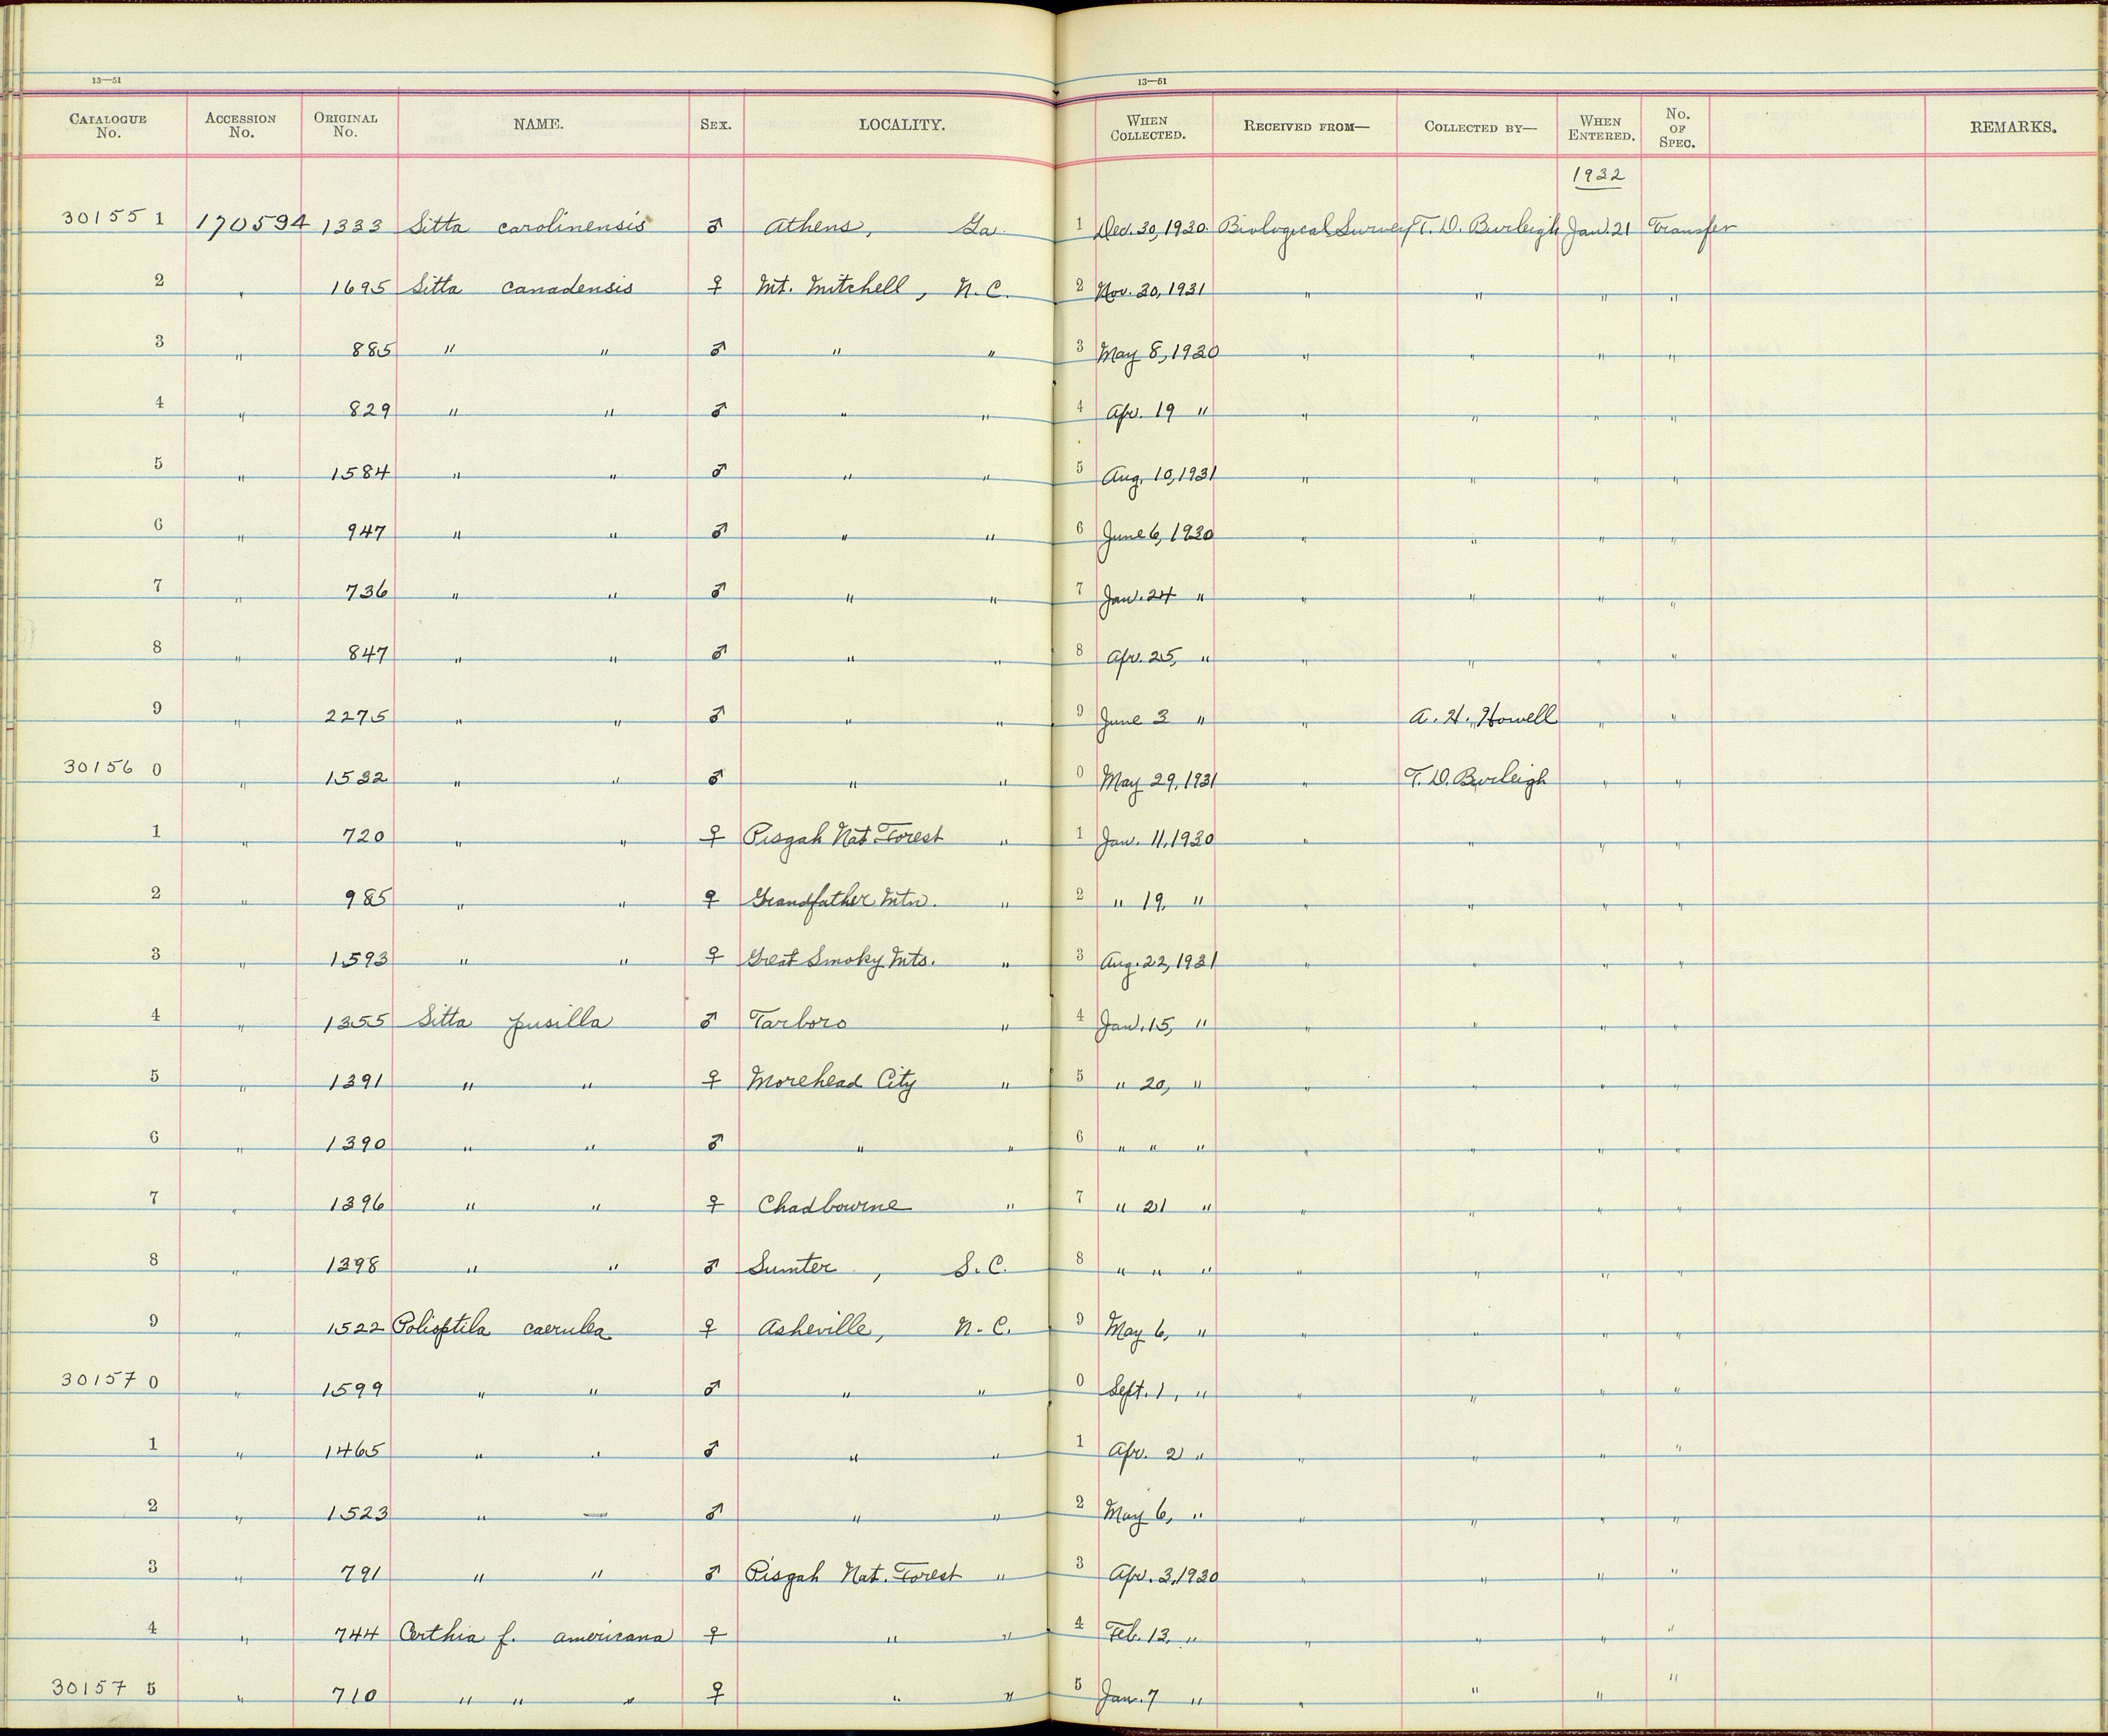 13—51 13—51
CATALOGUE No. ACCESSION No. ORIGINAL No. NAME. SEX. LOCALITY. WHEN COLLECTED. RECEIVED FROM— COLLECTED BY— WHEN ENTERED. No. OF SPEC. REMARKS.
1932
30155 1 170594 1333 Sitta carolinensis ♂ Athens, Ga. 1 Dec. 30, 1930. Biological Survey T. D. Burleigh Jan. 21 Transfer
2 " 1695 Sitta canadensis ♀ Mt. Mitchell, N.C. 2 Nov. 30, 1931 " " " "
3 " 885 " " ♂ " " 3 May 8, 1930 " " " "
4 " 829 " " ♂ " " 4 Apr. 19 " " " " "
5 " 1584 " " ♂ " " 5 Aug. 10, 1931 " " " "
6 " 947 " " ♂ " " 6 June 6, 1930 " " " "
7 " 736 " " ♂ " " 7 Jan. 24 " " " " "
8 " 847 " " ♂ " " 8 Apr. 25, " " " "
9 " 2275 " " ♂ " " 9 June 3 " " A. H. Howell " "
30156 0 " 1532 " " ♂ " " 0 May 29, 1931 " T. D. Burleigh " "
1 " 720 " " ♀ Pisgah Nat. Forest " 1 Jan. 11, 1930 " " " "
2 " 985 " " ♀ Grandfather Mtn. " 2 " 19, " " " " "
3 " 1593 " " ♀ Great Smoky Mts. " 3 Aug. 22, 1931 " " " "
4 " 1355 Sitta pusilla ♂ Tarboro " 4 Jan. 15, " " " " "
5 " 1391 " " ♀ Morehead City " 5 " 20, " " " " "
6 " 1390 " " ♂ " " 6 " " " " " " "
7 " 1396 " " ♀ Chadbourne " 7 " 21 " " " " "
8 " 1398 " " ♂ Sumter, S.C. 8 " " " " " " "
9 " 1522 Polioptila caerulea ♀ Asheville, N.C. 9 May 6, " " " " "
30157 0 " 1599 " " ♂ " " 0 Sept. 1, " " " " "
1 " 1465 " " ♂ " " 1 Apr. 2 " " " " "
2 " 1523 " — ♂ " " 2 May 6, " " " " "
3 " 791 " " ♂ Pisgah Nat. Forest " 3 Apr. 3, 1930 " " " "
4 " 744 Certhia f. americana ♀ " " 4 Feb. 13, " " " " "
30157 5 " 710 " " " ♀ " " 5 Jan. 7 " " " " "